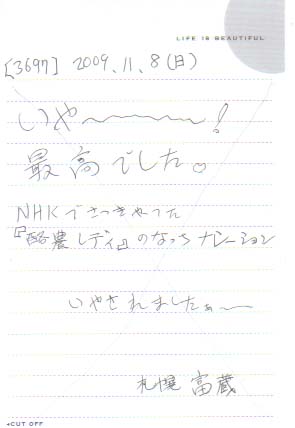 LIFE IS BEAUTIFUL
[3697] 2009.11.8(日)
いや〜〜〜〜!
最高でした♡
NHKでさっきやってた
『酪農レディ』のなっちナレーション
いやされましたぁ〜
札幌 富蔵
◂CUT OFF